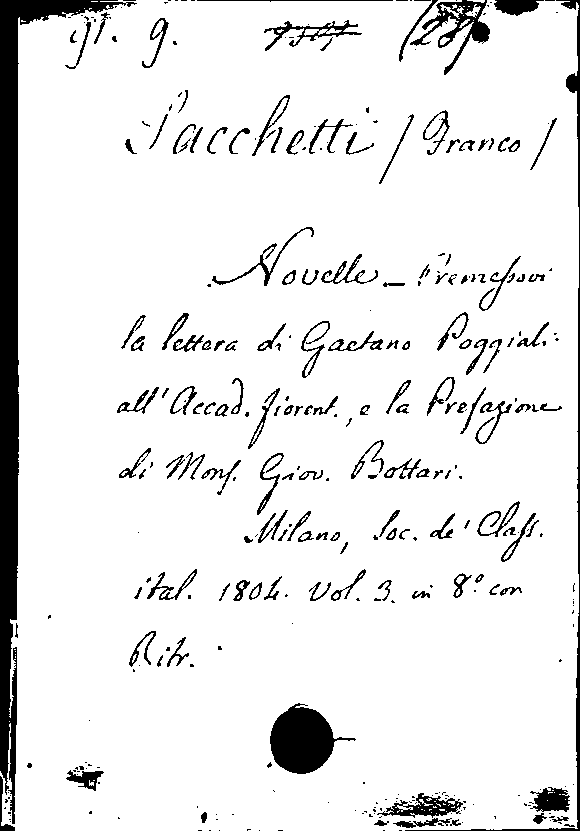 91. 9. 7501 (28)
Sacchetti / Franco /
Novelle _ Premessovi
la lettera di Gaetano Poggiali
all' Accad. fiorent., e la Prefazione
di Mons. Giov. Bottari.
Milano, Soc. de' Class.
ital. 1804. Vol. 3. in 8.º con
Ritr.